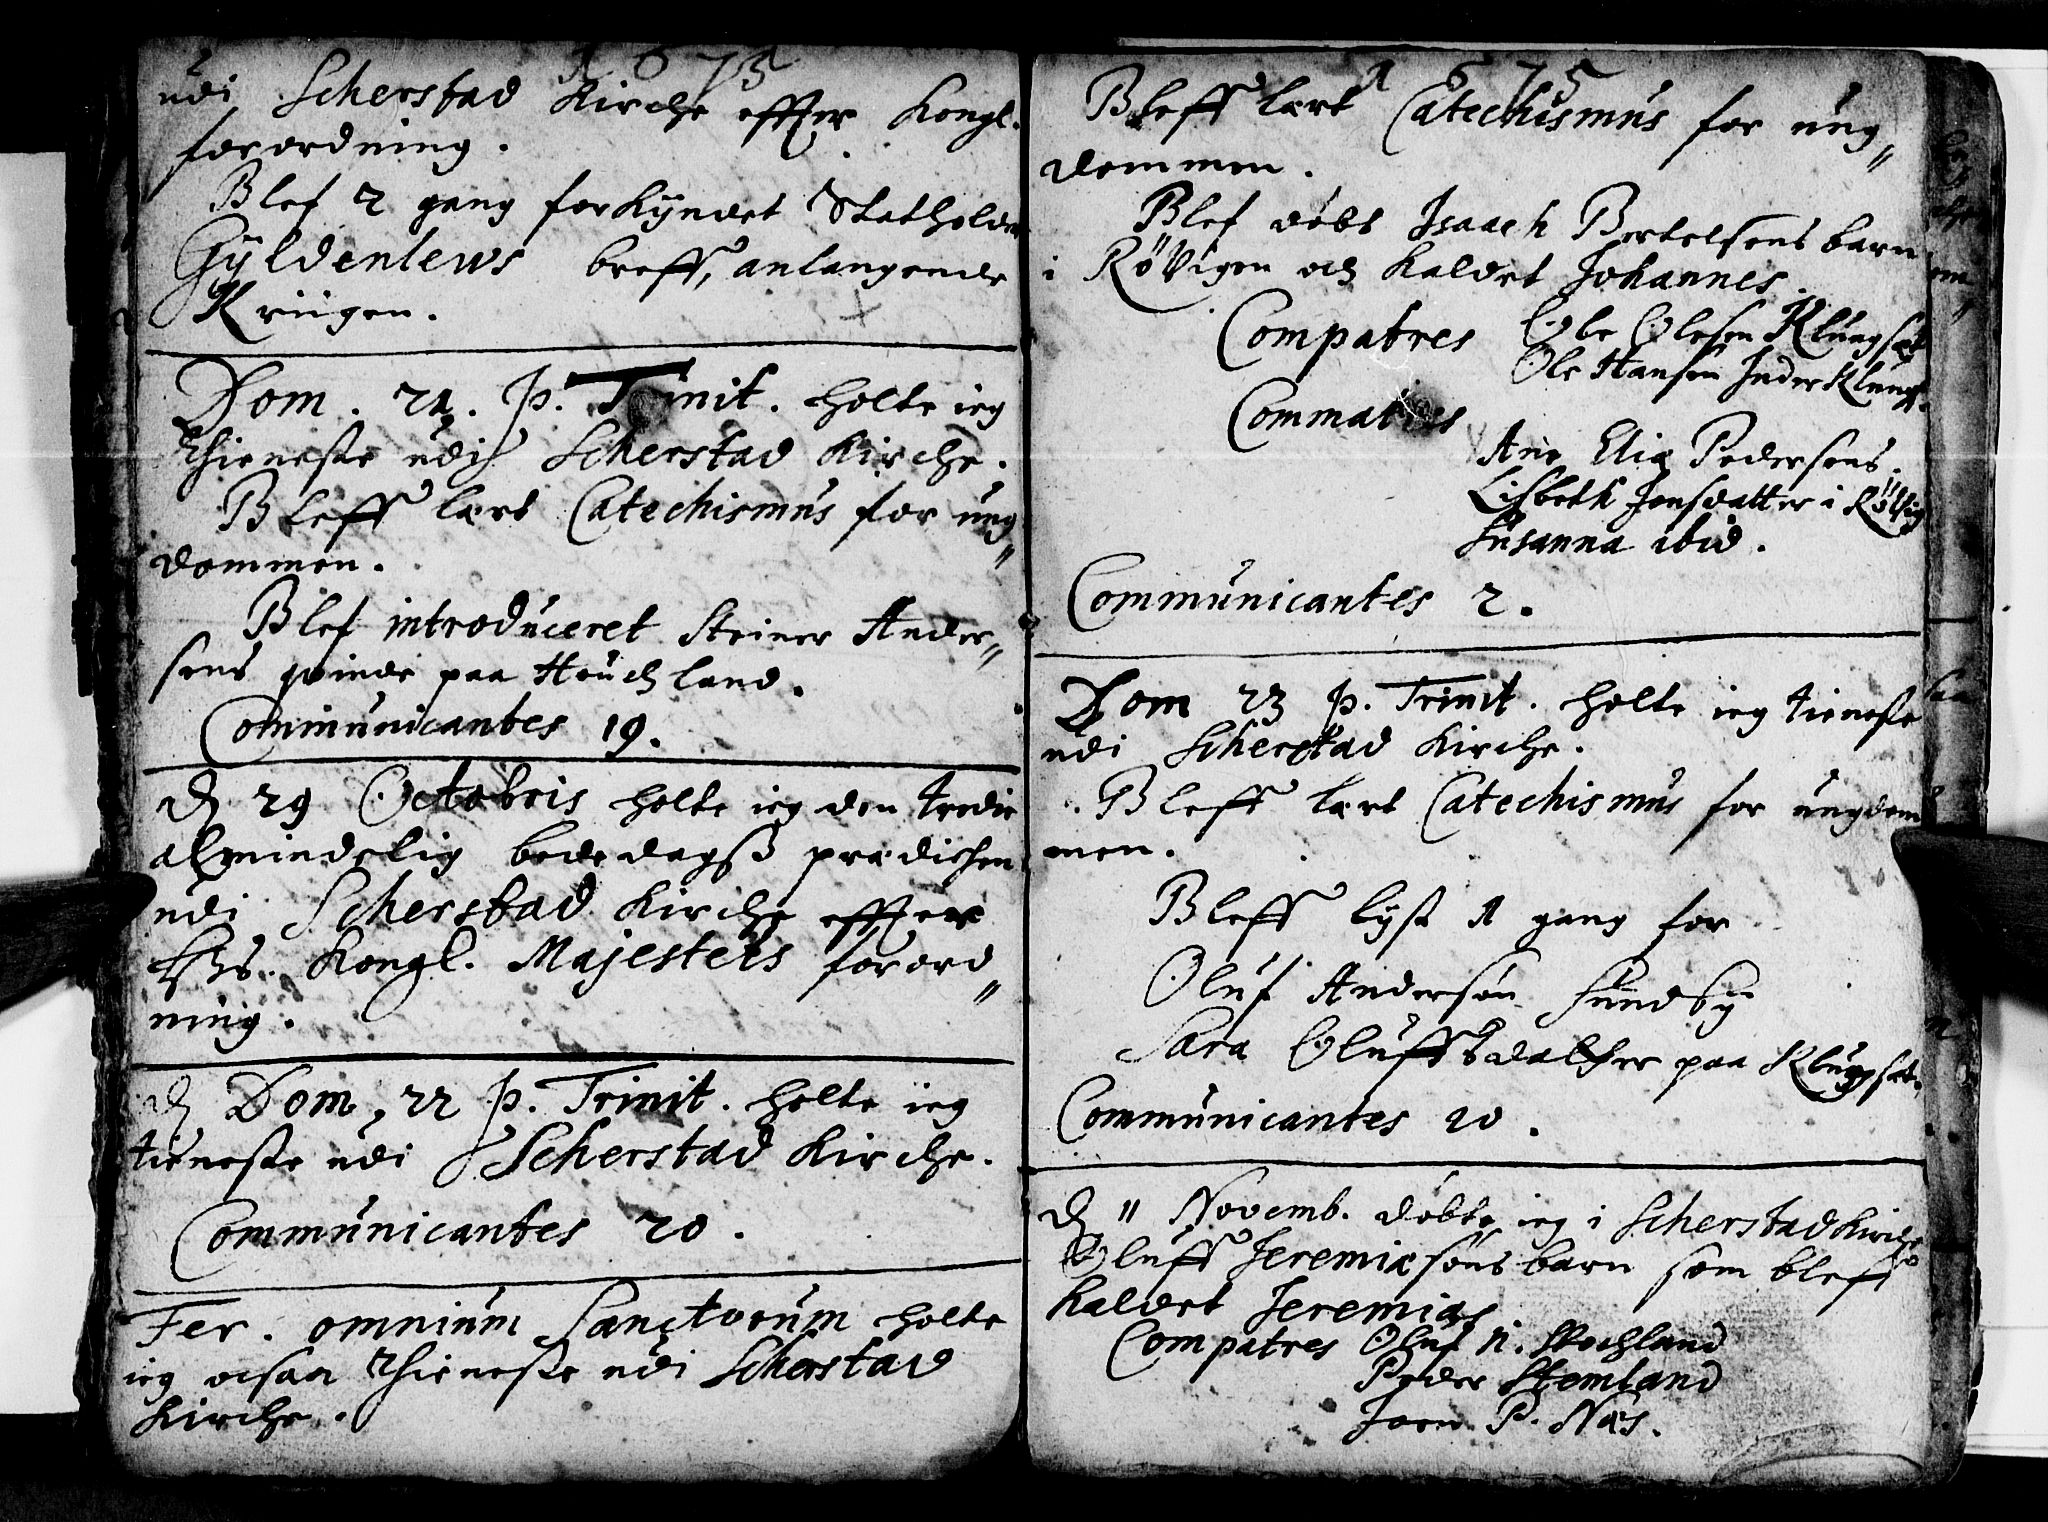 1675
udi Scherstad Kirche effter Kongl.
forordning.
Blef 2 gang forkÿndet Statholder
Gÿldenlews breff, anlangende
Kriigen.
Dom. 21. p. Trinit. holte ieg
thieneste udi Scherstad Kirche.
Bleff lært Catechismus for ung„
dommen.
Blef introduceret Steiner Ander„
sens qvinde paa Houchland.
Communicantes 19.
D 29 Octobris holte ieg den tredie
almindelig bededagß prædichen
udi Scherstad Kirche effter
Kongl. Majestets forord„
ning.
D Dom. 22 p. Trinit. holte ieg
tieneste udi Scherstad Kirche.
Communicantes 20.
Fer. omnium Sanctorum holte
ieg ocsaa thieneste udi Scherstad
Kirche.
1675
Bleff lært Catechismus for ung„
dommen.
Blef döbt Isaach Bertelsens barn
i RöVigen och kaldet Johannes.
Compatres Ole Olesen Klungset
Ole Hansen Inder Klungs.
Commatres
Ane Eliæ Pedersens.
Lisbeth Jensdatter i Rövig
Susanna ibid.
Communicantes 2.
Dom 23 p. Trinit. holte ieg tieneste
udi Scherstad Kirche.
Bleff lært Catechismus for ungdom
men.
Bleff lyst 1 gang for
Oluf Andersøn Sundbÿ
Sara Oluffsdatter paa Klungset.
Communicantes 20.
D 11 Novemb. döbte ieg i Scherstad Kirche
Oluff Jeremiæsöns barn som bleff
kaldet Jeremias
Compatres Oluf N. Stochland
Peder Stemland
Joen P. Næs.